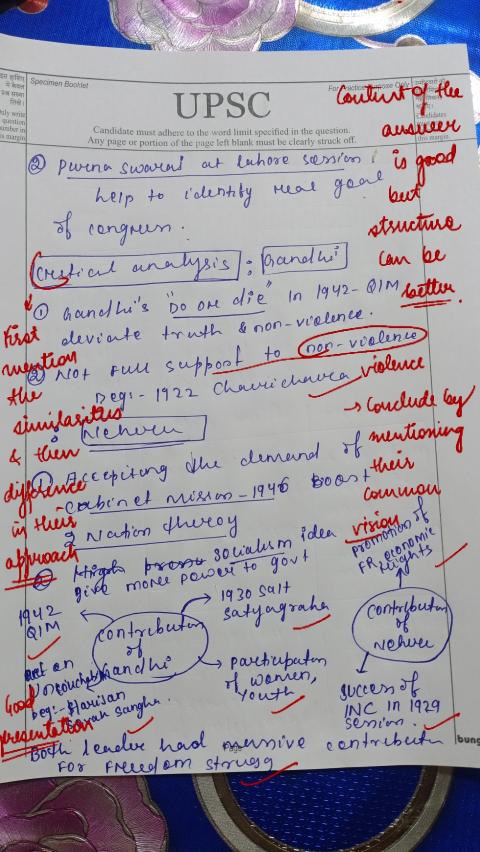 Specimen Booklet
For Practice Purpose Only
UPSC
Candidate must adhere to the word limit specified in the question.
Any page or portion of the page left blank must be clearly struck off.
Content of the
answer
is good
but
structure
can be
better.
② Purna Swaraj at Lahore Session
help to identify real goal
of congress.
Critical analysis : Gandhi
① Gandhi's "Do or die" in 1942- QIM
deviate truth & non-violence.
② Not full support to non-violence
Deg:- 1922 Chauri chaura
violence
First
mention
the
similarities
& then
difference
in their
approach
→ Conclude by
mentioning
their
common
vision
Nehru
① Accepting the demand of
Cabinet mission - 1946 boost
2 Nation theroy
② socialism idea
give more power to govt
1942
QIM
Contribution
of
Gandhi
1930 salt
satyagraha
participation
of women,
youth
Deg:- Harijan
Sevak Sangha.
promotion of
FR, economic
heights
Contribution
of
Nehru
success of
INC in 1929
session.
Good
presentation
Both leader had massive contributn
for freedom strugg
Page